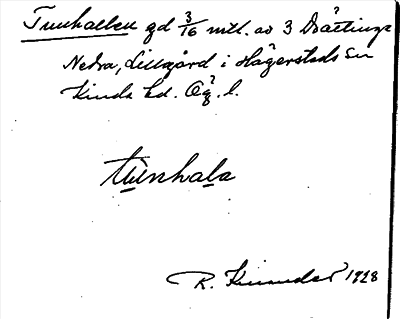 Tunhallen gd 3/16 mtl. av 3 Drättinge
Nedra, Lillgård i Hägerstads Sn
Kinda hd. Ög. l.
tunhala
R. Kinander 1928